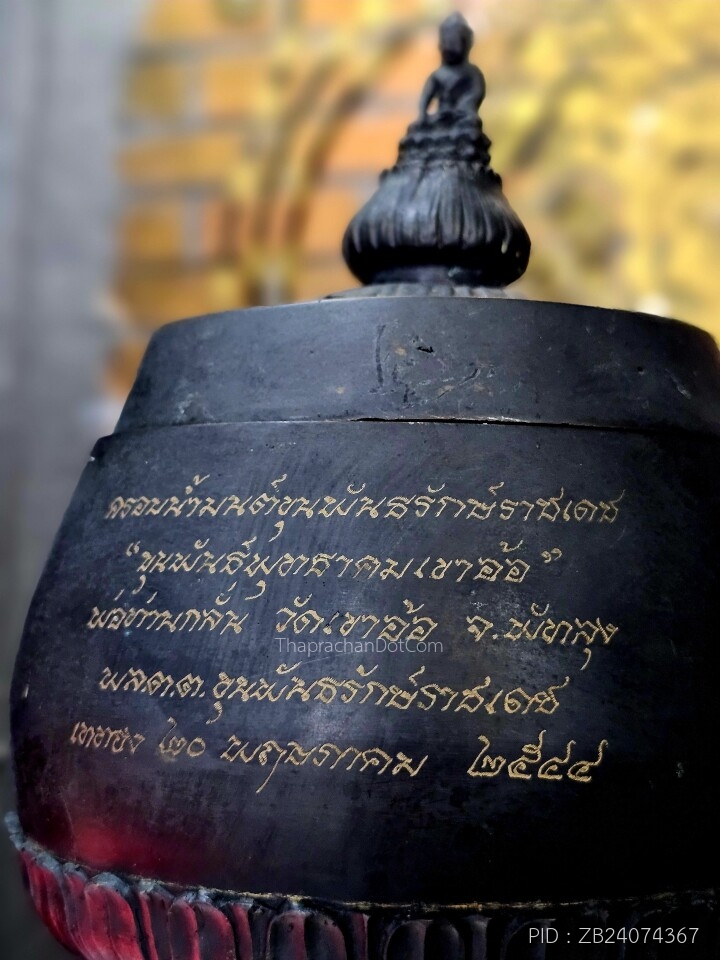 ครอบน้ำมนต์ขุนพันธรักษ์ราชเดช
“ขุนพันธ์พุทธาคมเขาอ้อ”
พ่อท่านกลั่น วัดเขาอ้อ จ.พัทลุง
ThaprachanDotCom
พล.ต.ต.ขุนพันธรักษ์ราชเดช
เททอง ๒๐ พฤษภาคม ๒๕๔๔
PID : ZB24074367